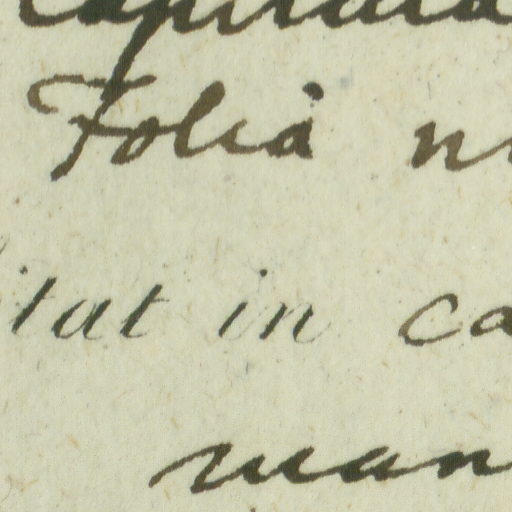 Folia
itat in ca
man